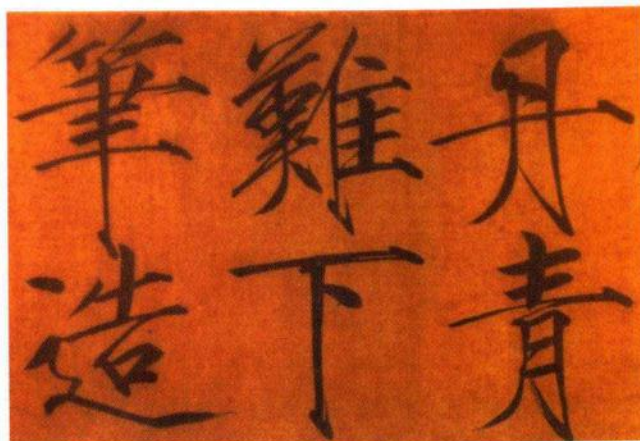 丹青
難下
筆造